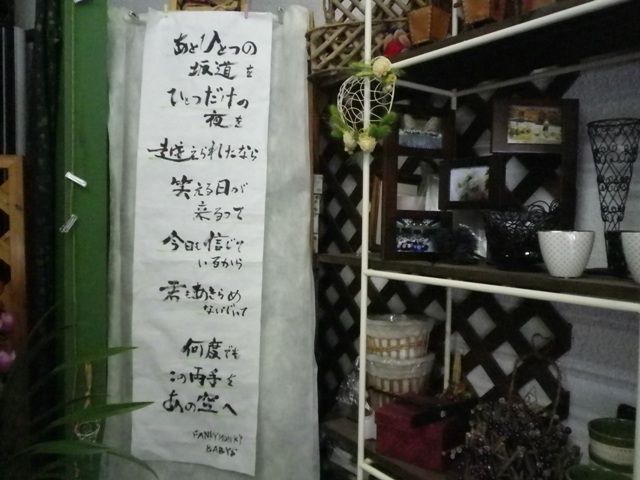 あとひとつの
坂道を
ひとつだけの
夜を
越えられたなら
笑える日が
来るって
今日も信じて
いるから
君もあきらめ
ないでいて
何度でも
この両手を
あの空へ
FUNKY MONKEY
BABYS